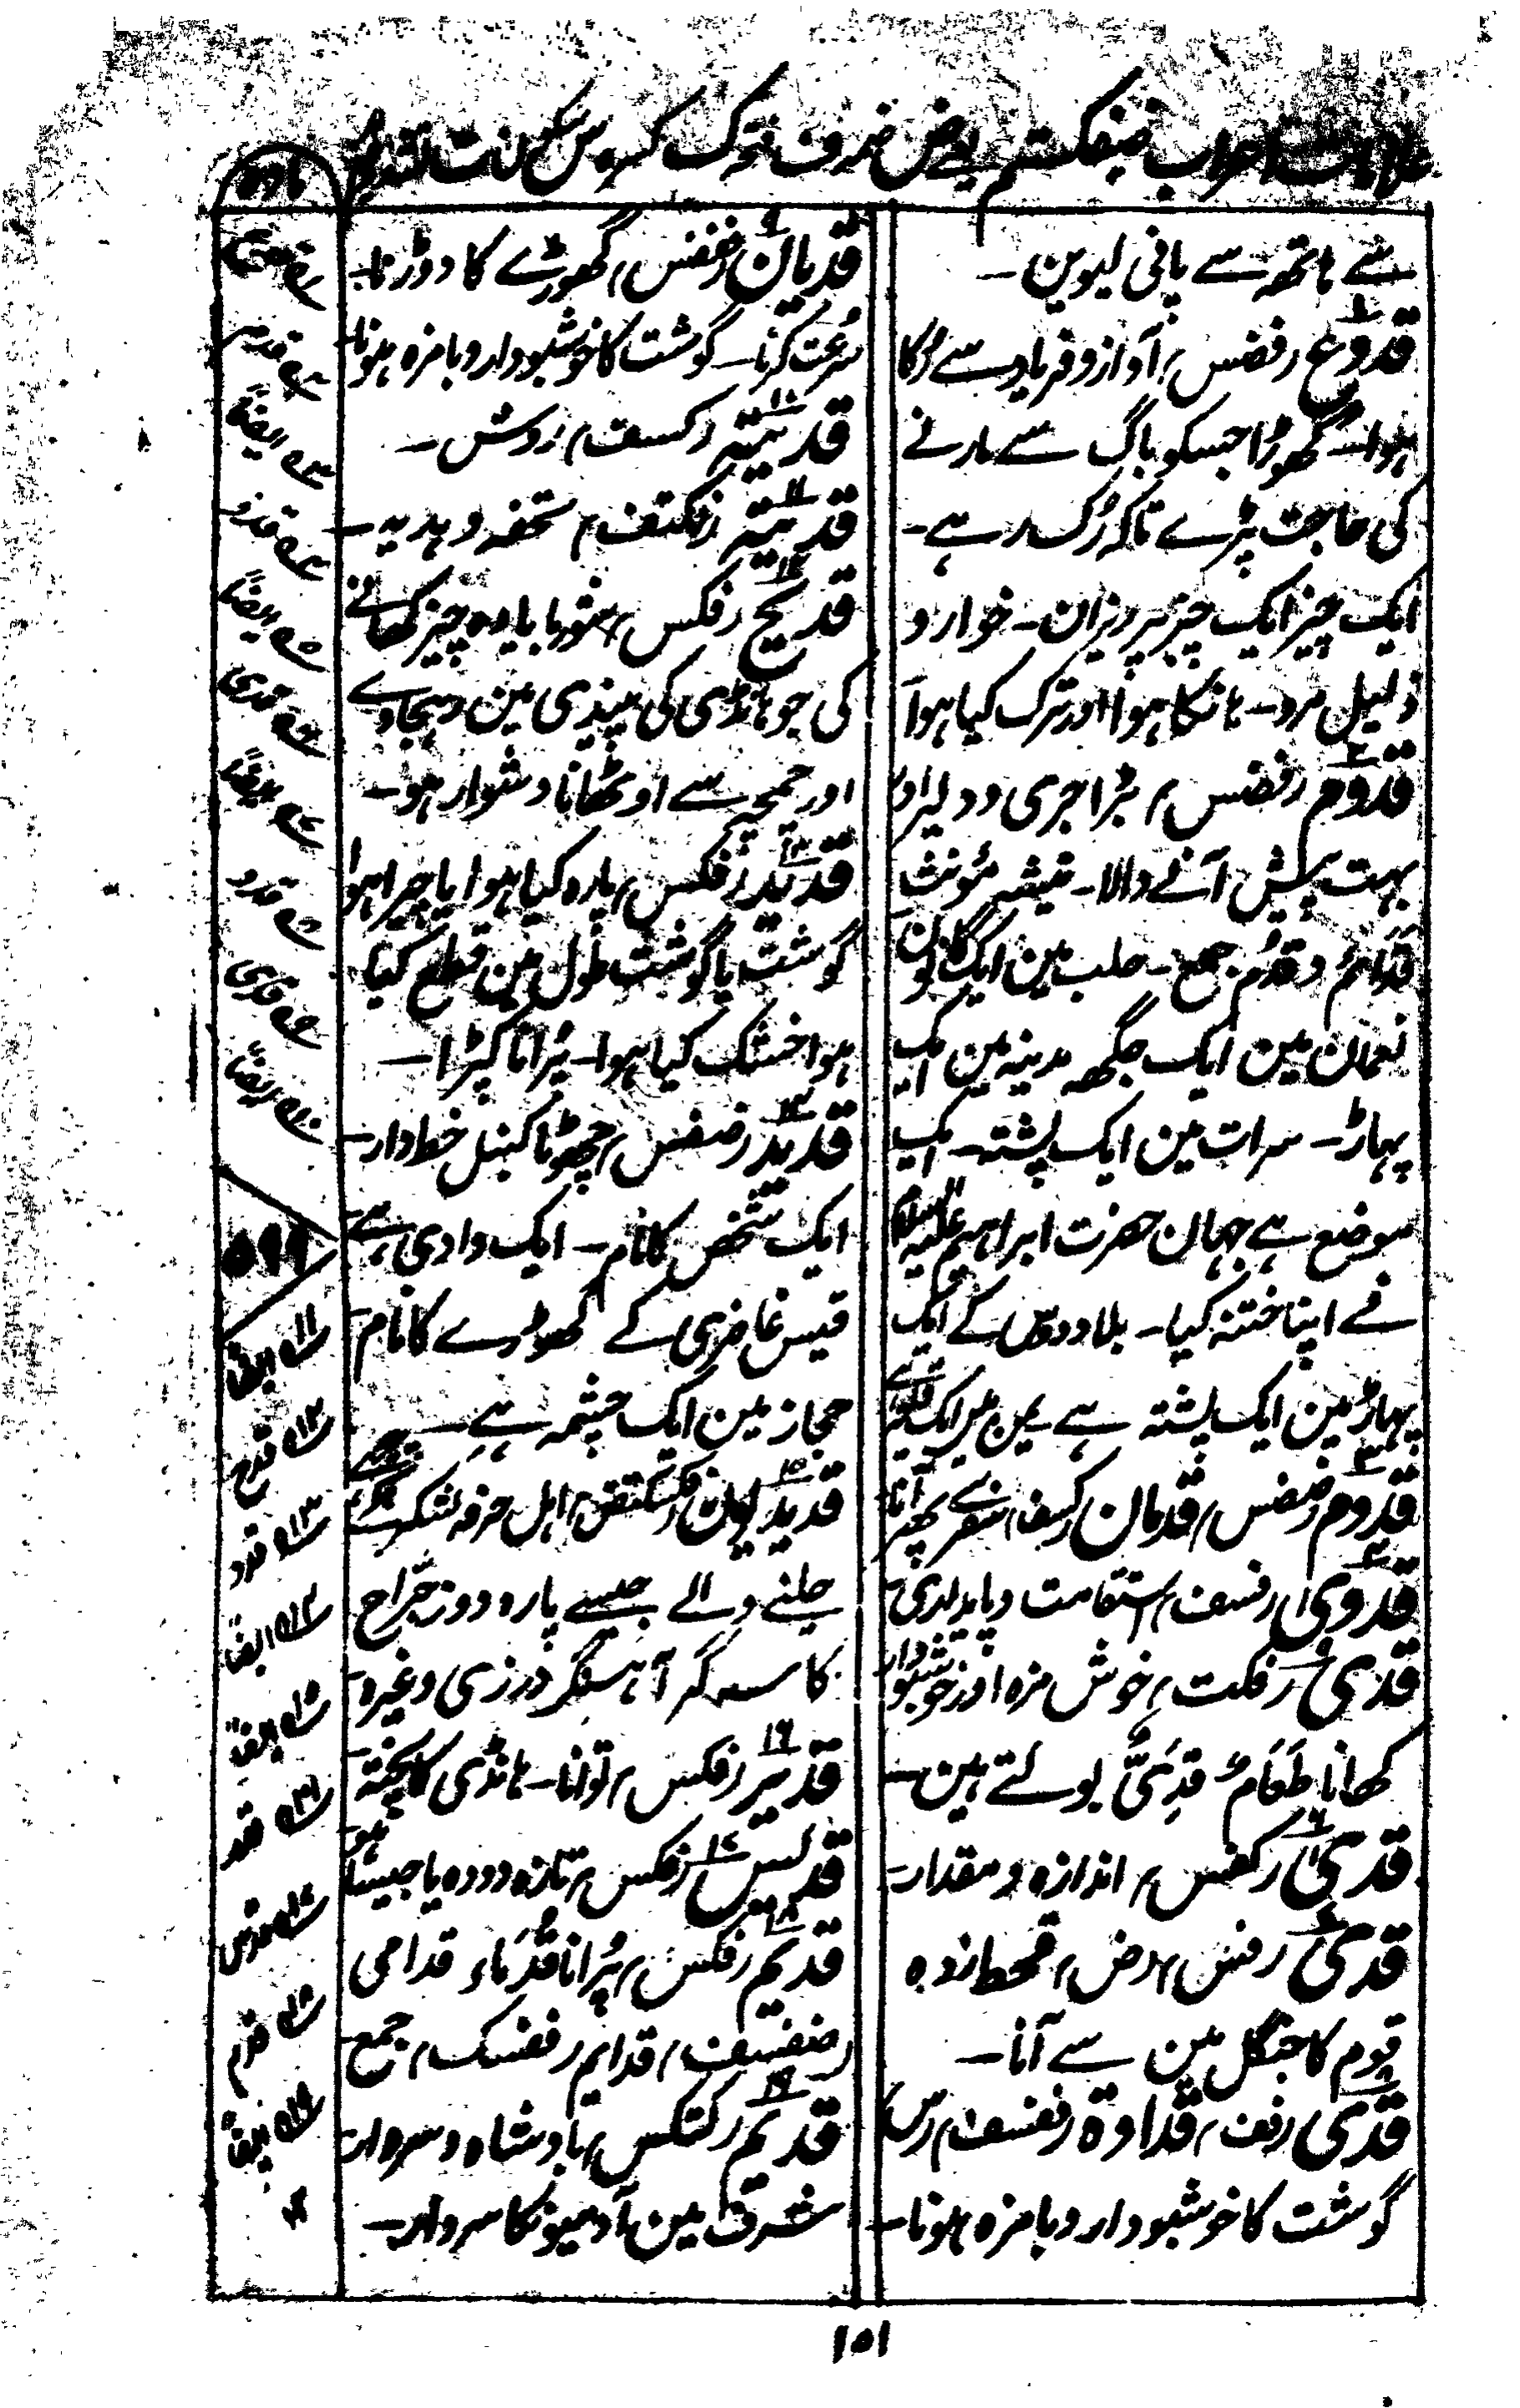 علامات اعراب
مادہ
سے ہاتھہ سے پانی لیوین۔
قدوع (فضس) آواز و فریاد سے رکا
ہوا۔ گھوڑا جسکو باگ سے مارنے
کی حاجت پڑے تاکہ رک رہے۔
ایک چیز ایک چیز پر ریزان۔ خوار و
ذلیل مرد۔ ہانکا ہوا اور ترک کیا ہوا
قدوم (فضس) بڑا جری و دلیر اور
بہت پیش آنے والا۔ تیشہ مؤنث
قدائم و قدم جمع۔ حلب مین ایک گانون
نعمان مین ایک جگھہ مدینہ مین ایک
پہاڑ۔ سرات مین ایک پشتہ۔ ایک
موضع ہے جہان حضرت ابراہیم علیہ السلام
نے اپنا ختنہ کیا۔ بلاد دوس کے ایک
پہاڑ مین ایک پشتہ ہے یمن مین ایک قلعہ ہے
قدوم (ضضس) قدمان (کسف) سفر سے پھر آنا
قدوی (فسف) استقامت و پایداری
قدی (فکت) خوش مزہ اور خوشبودار
کھانا طَعَامٌ قَدِیٌّ بولتے ہین۔
قدی (کفس) اندازہ و مقدار۔
قدی (فس) (ض) قحط زدہ
قوم کا جنگل مین سے آنا۔
قدی (فف) قداوۃ (ففسف) (س)
گوشت کا خوشبودار و بامزہ ہونا۔
قدیان (ففس) گھوڑے کا دوڑنا۔
سرعت کرنا۔ گوشت کا خوشبودار و بامزہ ہونا
قدیۃ (کسف) روش۔
قدیۃ (فکتف) تحفہ و ہدیہ۔
قدیح (فکس) شوربا یا وہ چیز کھانے
کی جو ہانڈی کی پیندی مین رہجاوے
اور چمچہ سے اوٹھانا دشوار ہو۔
قدید (فکس) پارہ کیا ہوا یا چیرا ہوا
گوشت یا گوشت طول مین قطع کیا
ہوا خشک کیا ہوا۔ پُرانا کپڑا۔
قدید (ضفس) چھوٹا کنبل خطدار۔
ایک شخص کا نام۔ ایک وادی ہے
قیس غاضری کے گھوڑے کا نام
حجاز مین ایک چشمہ ہے۔
قدیدیون اہل حرفہ لشکر کے
چلنے والے جیسے پارہ دوز جراح
کاسہ گر آہنگر درزی وغیرہ
قدیر (فکس) توانا۔ ہانڈی کا پختہ
قدیس (فکس) تازہ دودہ یا جیسا ہو
قدیم (فکس) پُرانا قُدَمَاء قدامی
(ضفسف) قدایم (ففسک) جمع
قدیم (کتکس) بادشاہ و سردار
شرف مین آدمیونکا سردار۔
۲ قدس
۳ ایضاً
۴ قدو
۵ ایضاً
۶ قدی
۷ ایضاً
۸ قدو
۹ قدی
۱۰ ایضاً
۵۹۹
۱۱ ایضاً
۱۲ قدح
۱۳ قدد
۱۴ ایضاً
۱۵ ایضاً
۱۶ قدر
۱۷ قدس
۱۸ قدم
۱۹ ایضاً
۱۵۱